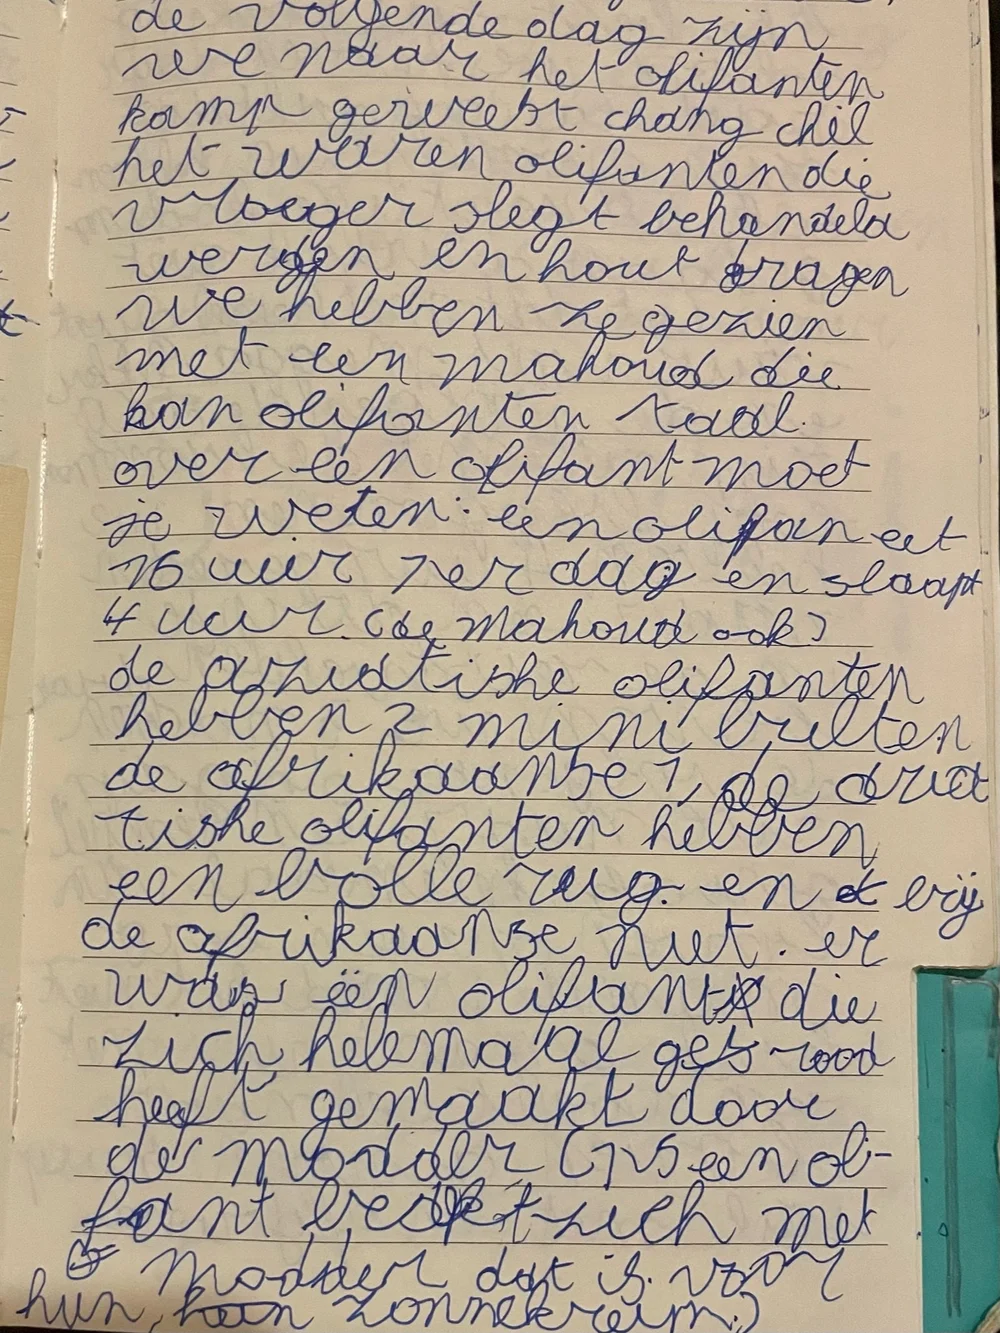 de volgende dag zijn
we naar het olifanten
kamp geweest chang chil
het waren olifanten die
vroeger slegt behandeld
werden en hout dragen
we hebben ze gezien
met een mahoud die
kan olifanten taal.
over een olifant moet
je weten: een olifan eet
16 uur per dag en slaapt
4 uur. (de mahoud ook)
de aziatishe olifanten
hebben 2 mini bulten
de afrikaanse 1, de aziat
tishe olifanten hebben
een bolle rug. en bij
de afrikaanse niet. er
was één olifant die
zich helemaal rood
heeft gemaakt door
de modder (ps een oli-
fant bedekt zich met
modder dat is voor
hun, zonnekreim.)